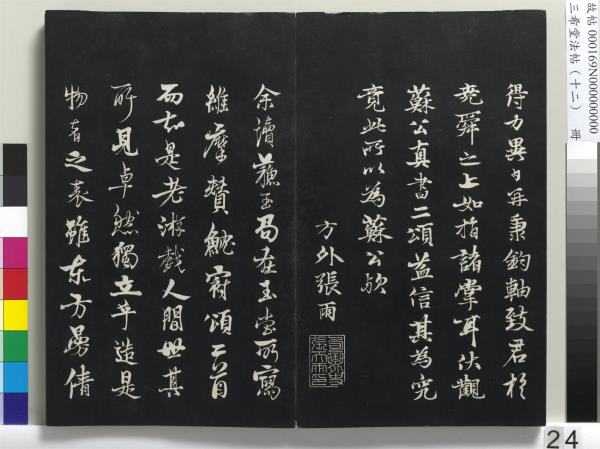 故帖 000169N000000000
三希堂法帖（十二） 冊
得力異日再秉鈞軸致君於
堯舜之上如指諸掌耳伏觀
蘇公真書二頌益信其為究
竟此所以為蘇公歟
方外張雨
余讀蘇玉局在玉堂所寫
維摩贊魫冠頌二首
而知是老游戲人間世其
所見卓然獨立乎造是
物者之表雖東方曼倩
24